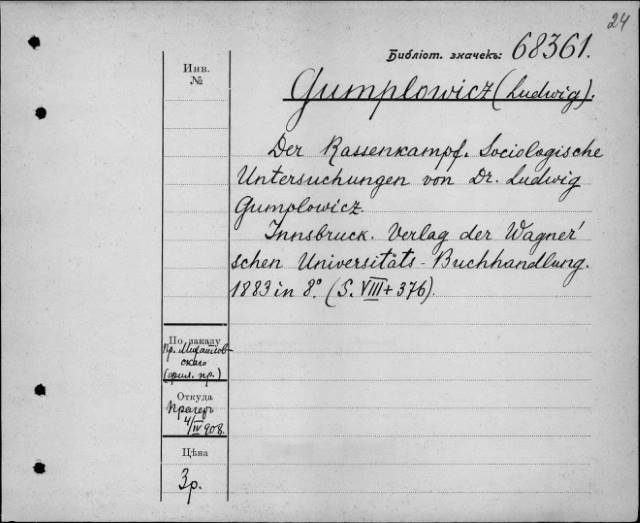 24
Библіот. значекъ: 68361.
Инв.
№
Gumplowicz (Ludwig).
Der Rassenkampf. Sociologische
Untersuchungen von Dr. Ludwig
Gumplowicz.
Innsbruck. Verlag der Wagner'
schen Universitäts-Buchhandlung.
1883 in 8°. (S. VIII + 376).
По заказу
Пр. Михайлов-
скаго
(фил. пр.)
Откуда
Прагеръ
4/IV 908.
Цѣна
3 р.